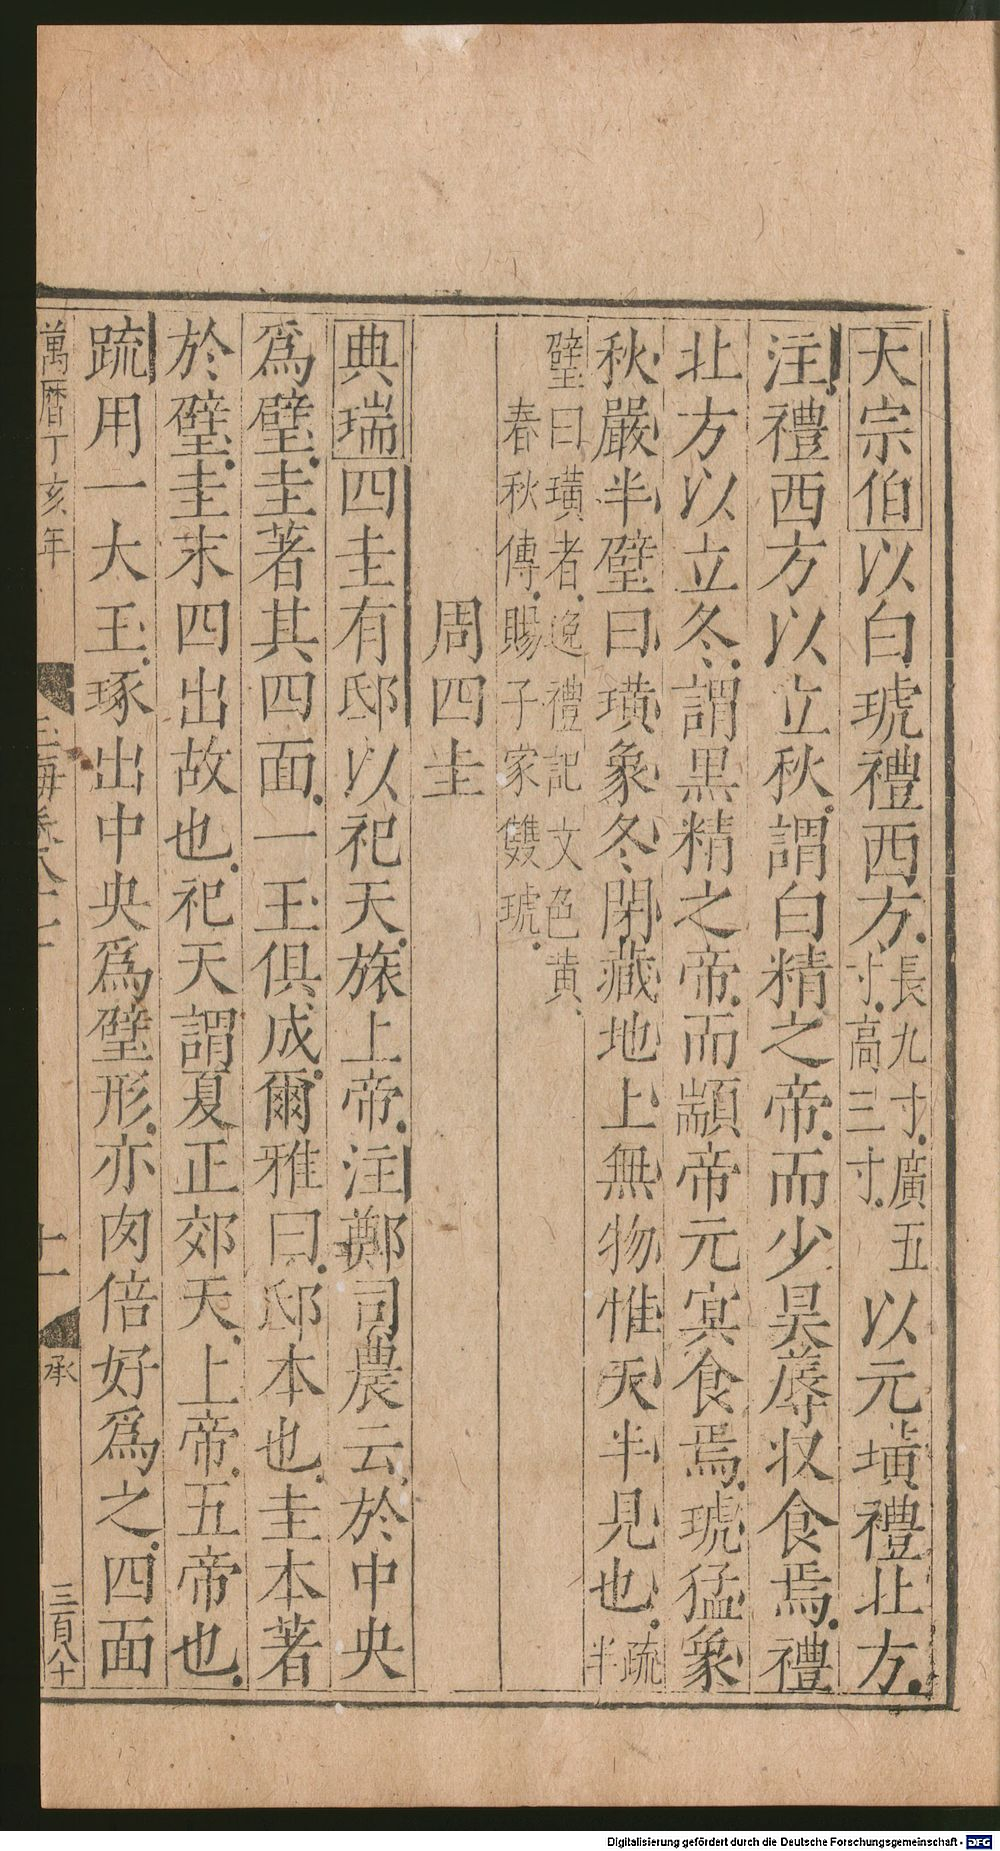 大宗伯以白琥禮西方長九寸廣五寸高三寸以元璜禮北方
注禮西方以立秋謂白精之帝而少昊蓐収食焉禮
北方以立冬謂黒精之帝而顓帝元冥食焉琥猛象
秋嚴半璧曰璜象冬閉藏地上無物惟天半見也疏半
璧曰璜者逸禮記文色黄
春秋傳賜子家雙琥
周四圭
典瑞四圭有邸以祀天旅上帝注鄭司農云於中央
爲璧圭著其四面一玉俱成爾雅曰邸本也圭本著
於璧圭末四出故也祀天謂夏正郊天上帝五帝也
疏用一大玉琢出中央爲璧形亦肉倍好爲之四面
萬曆丁亥年
玉海卷八十七
十一
承
三百八十
Digitalisierung gefördert durch die Deutsche Forschungsgemeinschaft - DFG